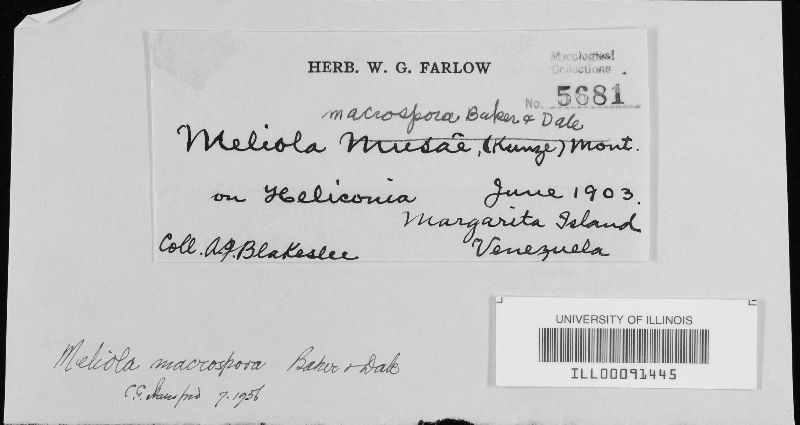 HERB. W. G. FARLOW
Mycological
Collections
No. 5681
macrospora Baker & Dale
Meliola Musae, (Kunze) Mont.
on Heliconia June 1903.
Margarita Island
Coll. A.F. Blakeslee Venezuela
UNIVERSITY OF ILLINOIS
ILL00091445
Meliola macrospora Baker & Dale
7.1956